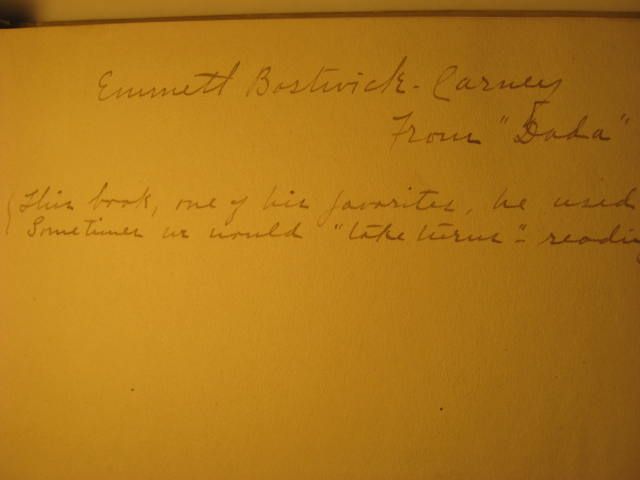 Emmett Bostwick-Carney
From "Dada"
(This book, one of his favorites, he used
Sometimes we would "take turns" - reading